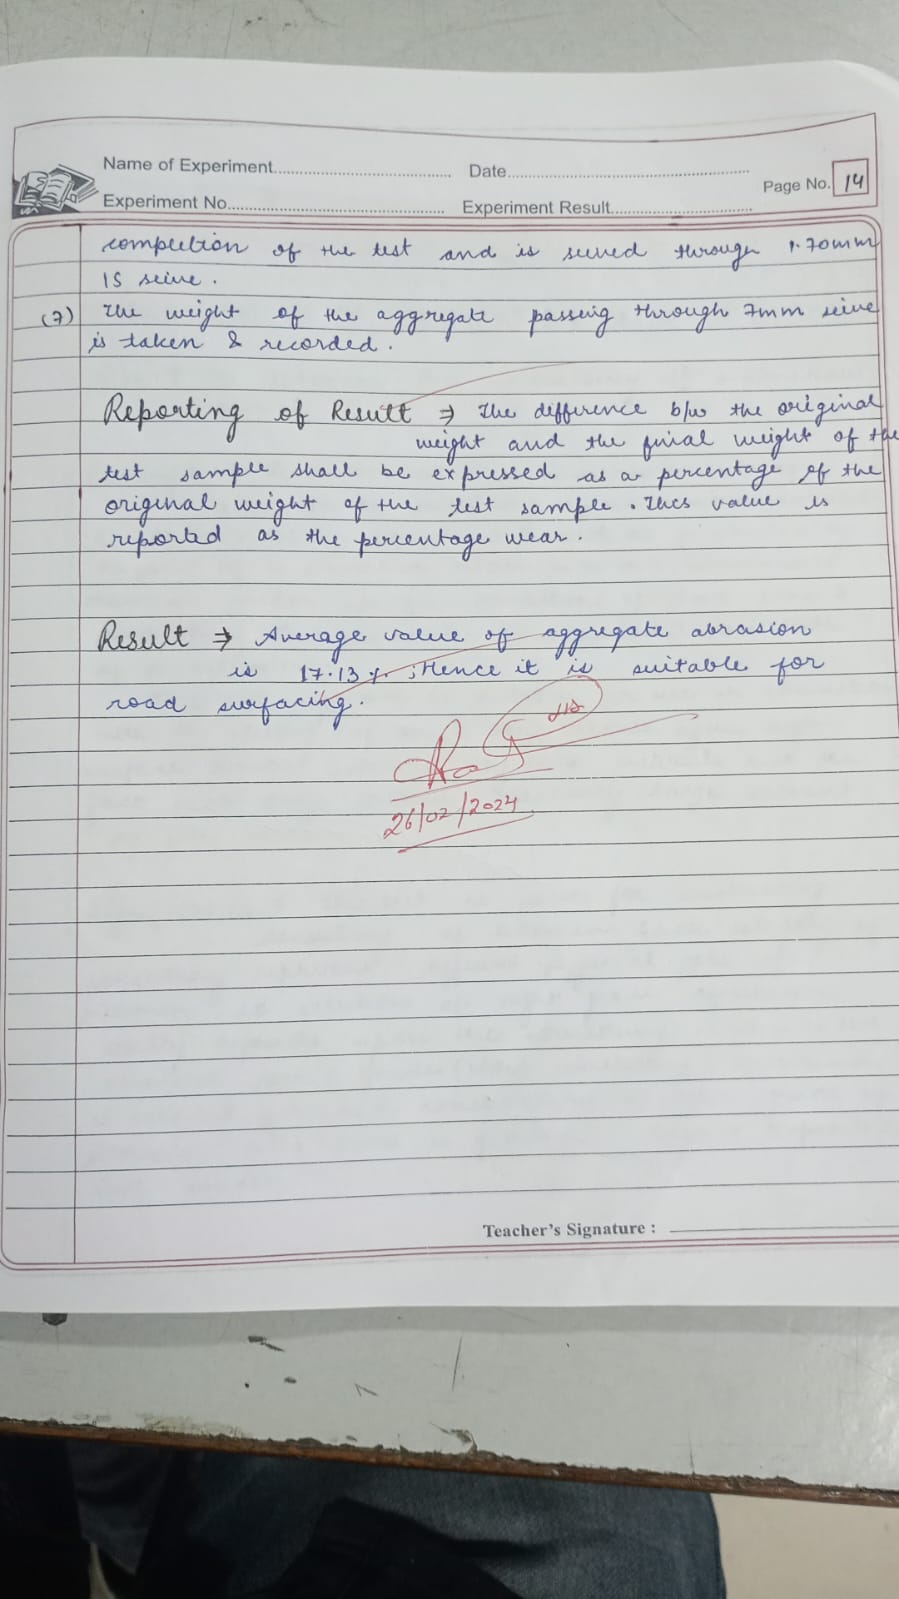 Name of Experiment.................... Date....................
Page No. 14
Experiment No.................... Experiment Result....................
completion of the test and is seived through 1.70mm
IS seive.
(7) The weight of the aggregate passing through 7mm seive
is taken & recorded.
Reporting of Result ⇒ The difference b/w the original
weight and the final weight of the
test sample shall be expressed as a percentage of the
original weight of the test sample. This value is
reported as the percentage wear.
Result ⇒ Average value of aggregate abrasion
is 17.13%. ; Hence it is suitable for
road surfacing.
26/02/2024
Teacher's Signature :